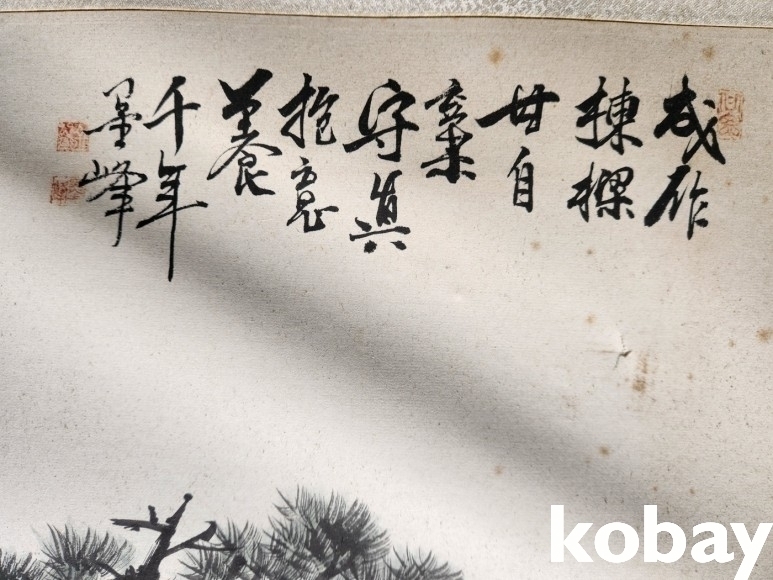 成作
棟樑
甘自
棄
守真
抱
養
千年
墨峰
kobay